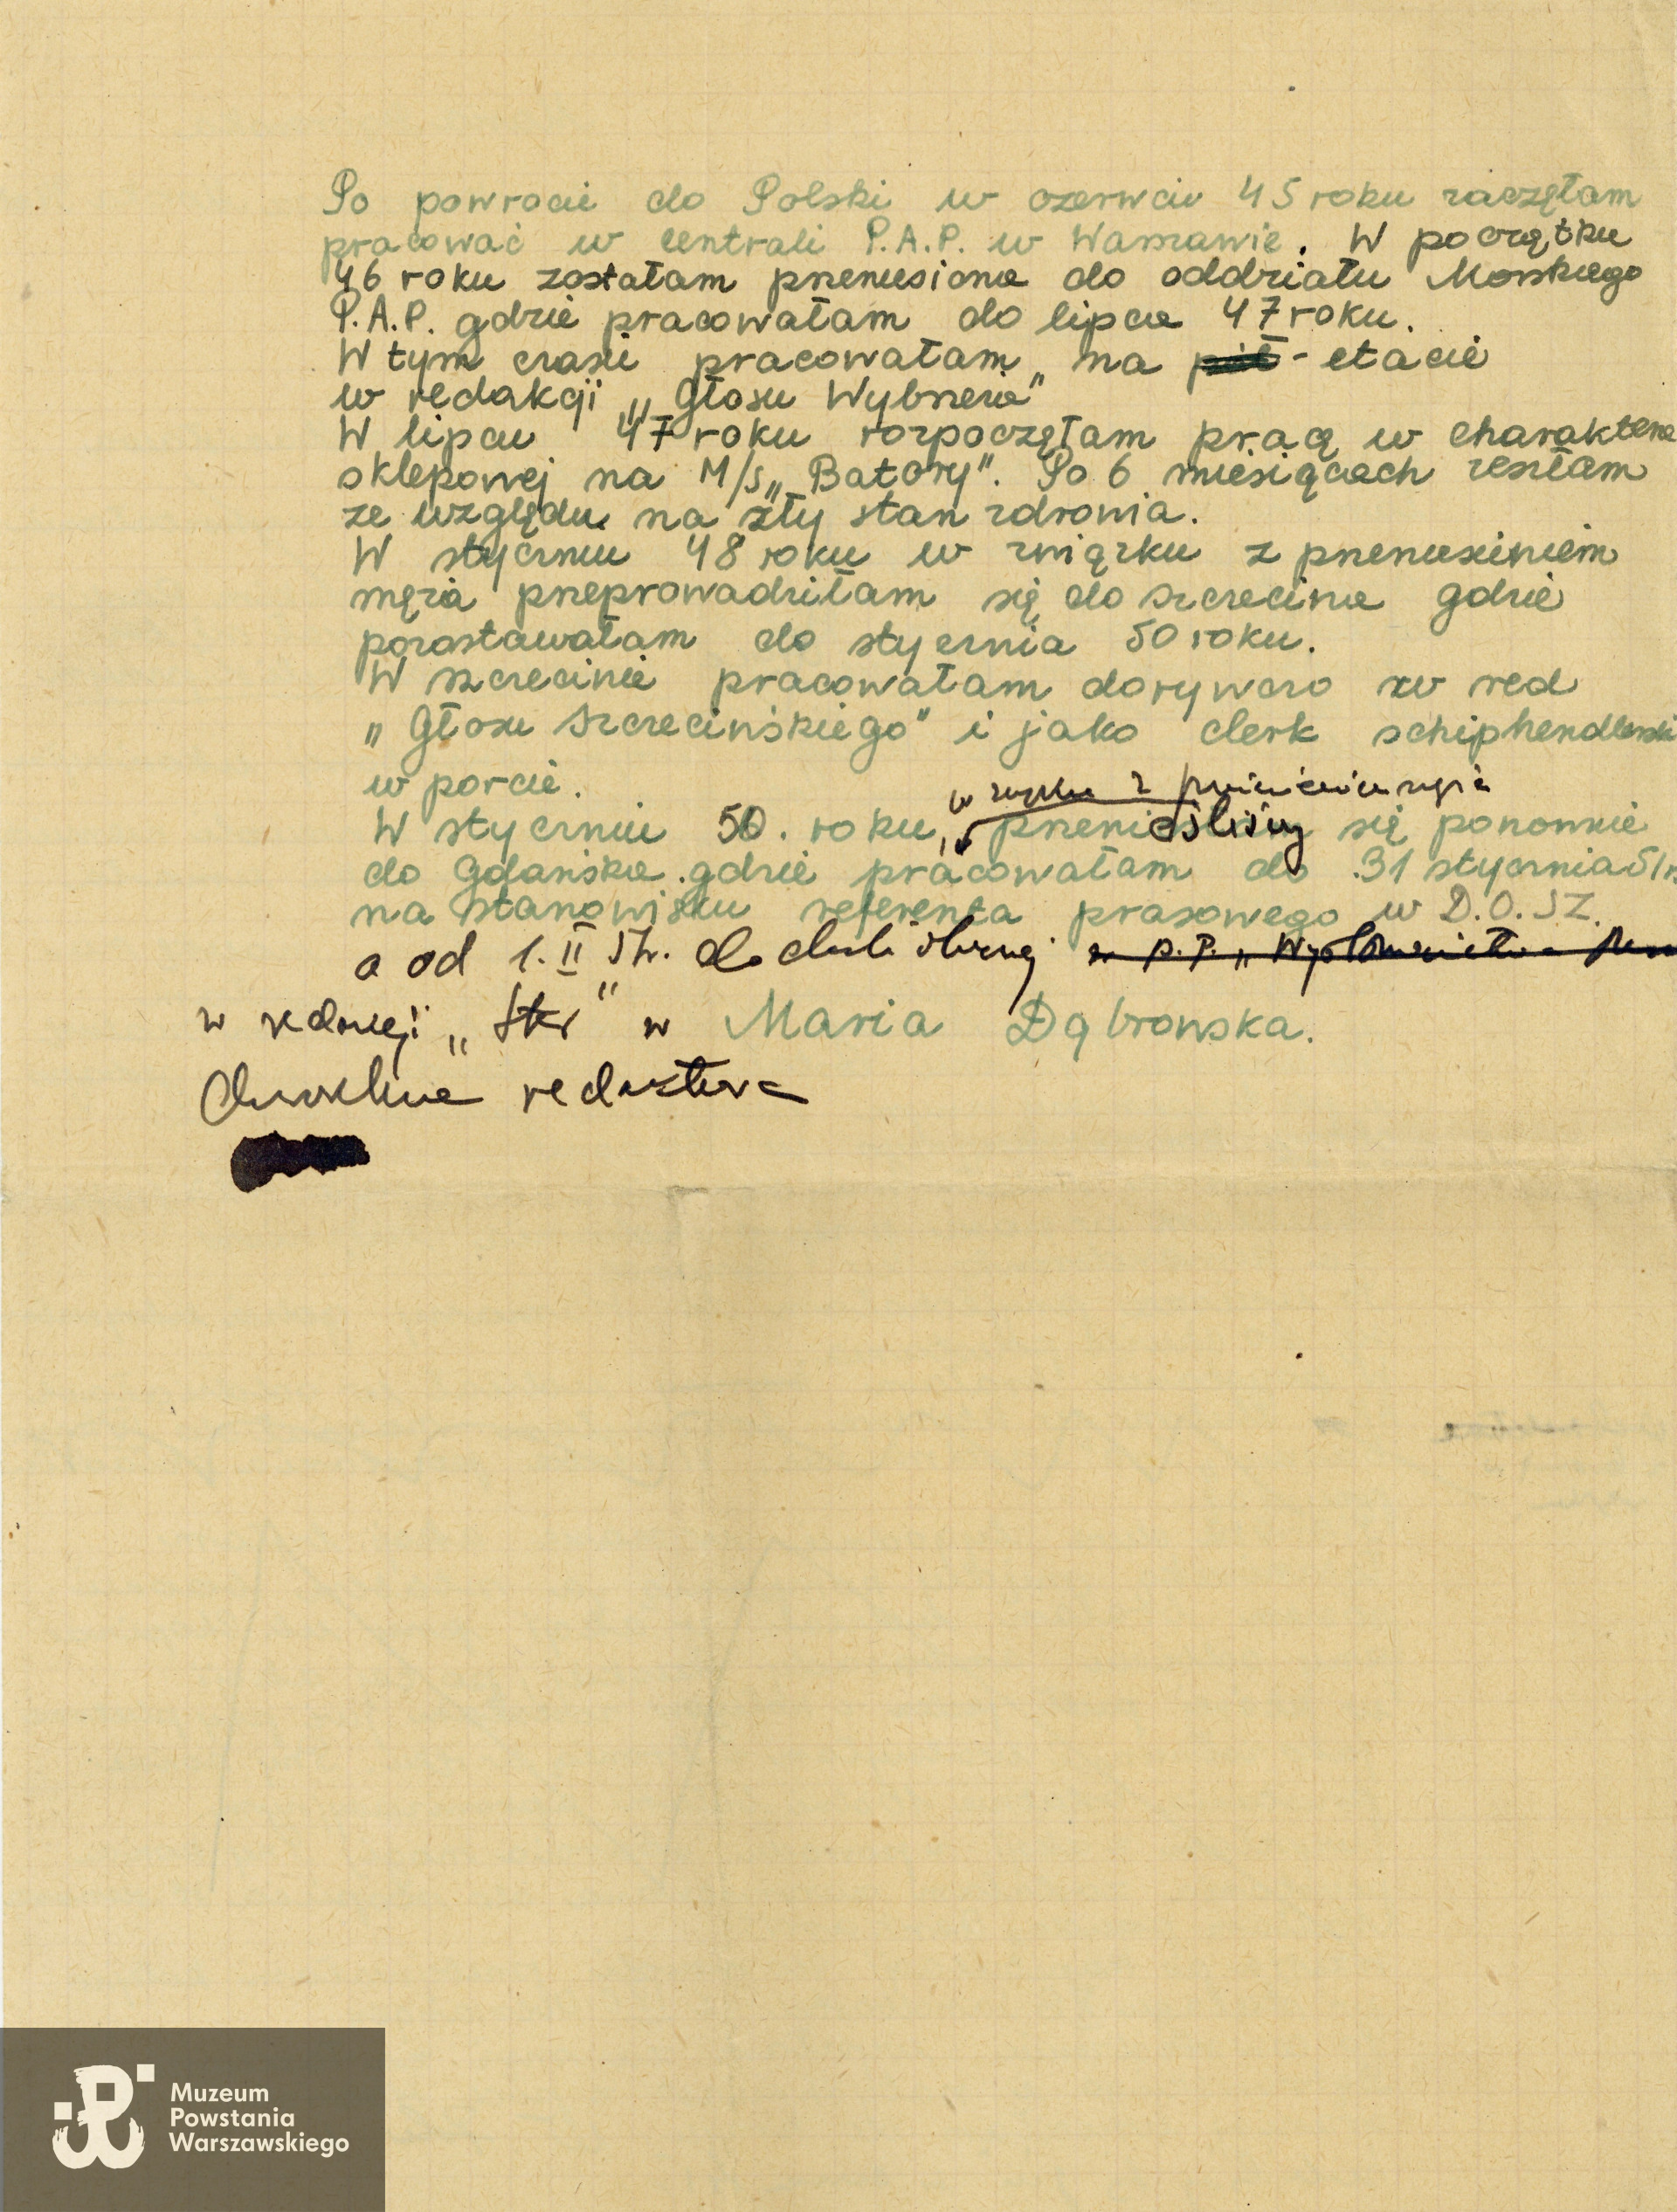 Po powrocie do Polski w czerwcu 45 roku zaczęłam
pracować w centrali P.A.P. w Warszawie. W początku
46 roku zostałam przeniesiona do oddziału Morskiego
P.A.P. gdzie pracowałam do lipca 47 roku.
W tym czasie pracowałam na pół - etacie
w redakcji „Głosu Wybrzeża"
W lipcu 47 roku rozpoczęłam pracę w charakterze
sklepowej na M/S „Batory". Po 6 miesiącach zeszłam
ze względu na zły stan zdrowia.
W styczniu 48 roku w związku z przeniesieniem
męża przeprowadziłam się do Szczecina gdzie
pozostawałam do stycznia 50 roku.
W szczecinie pracowałam dorywczo w red
„Głosu Szczecińskiego" i jako clerk schiphendlerski
w porcie.
w związku z przeniesieniem męża
W styczniu 50. roku, przenieśliśmy się ponownie
do Gdańska gdzie pracowałam do 31 stycznia 51 r.
na stanowisku referenta prasowego w D.O.SZ.
a od 1.II 51r. do chwili obecnej w P.P. „Wydawnictwo
w redakcji „Ster" w Maria Dąbrowska.
charakterze redaktora
Muzeum
Powstania
Warszawskiego